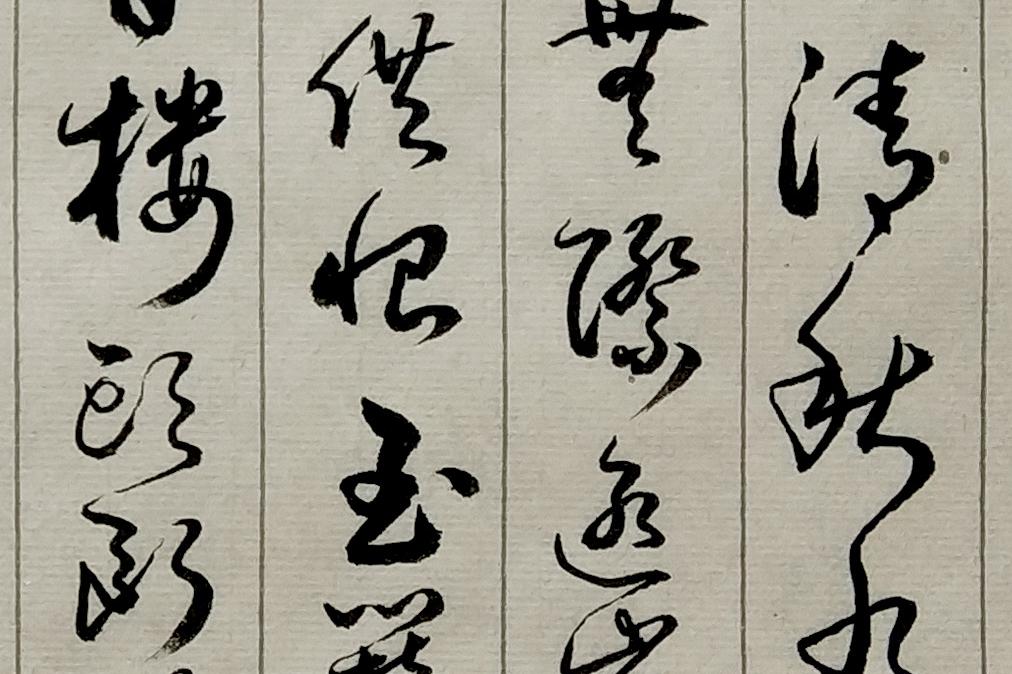 清秋水
無際遙岑
供恨玉簪
樓頭斷